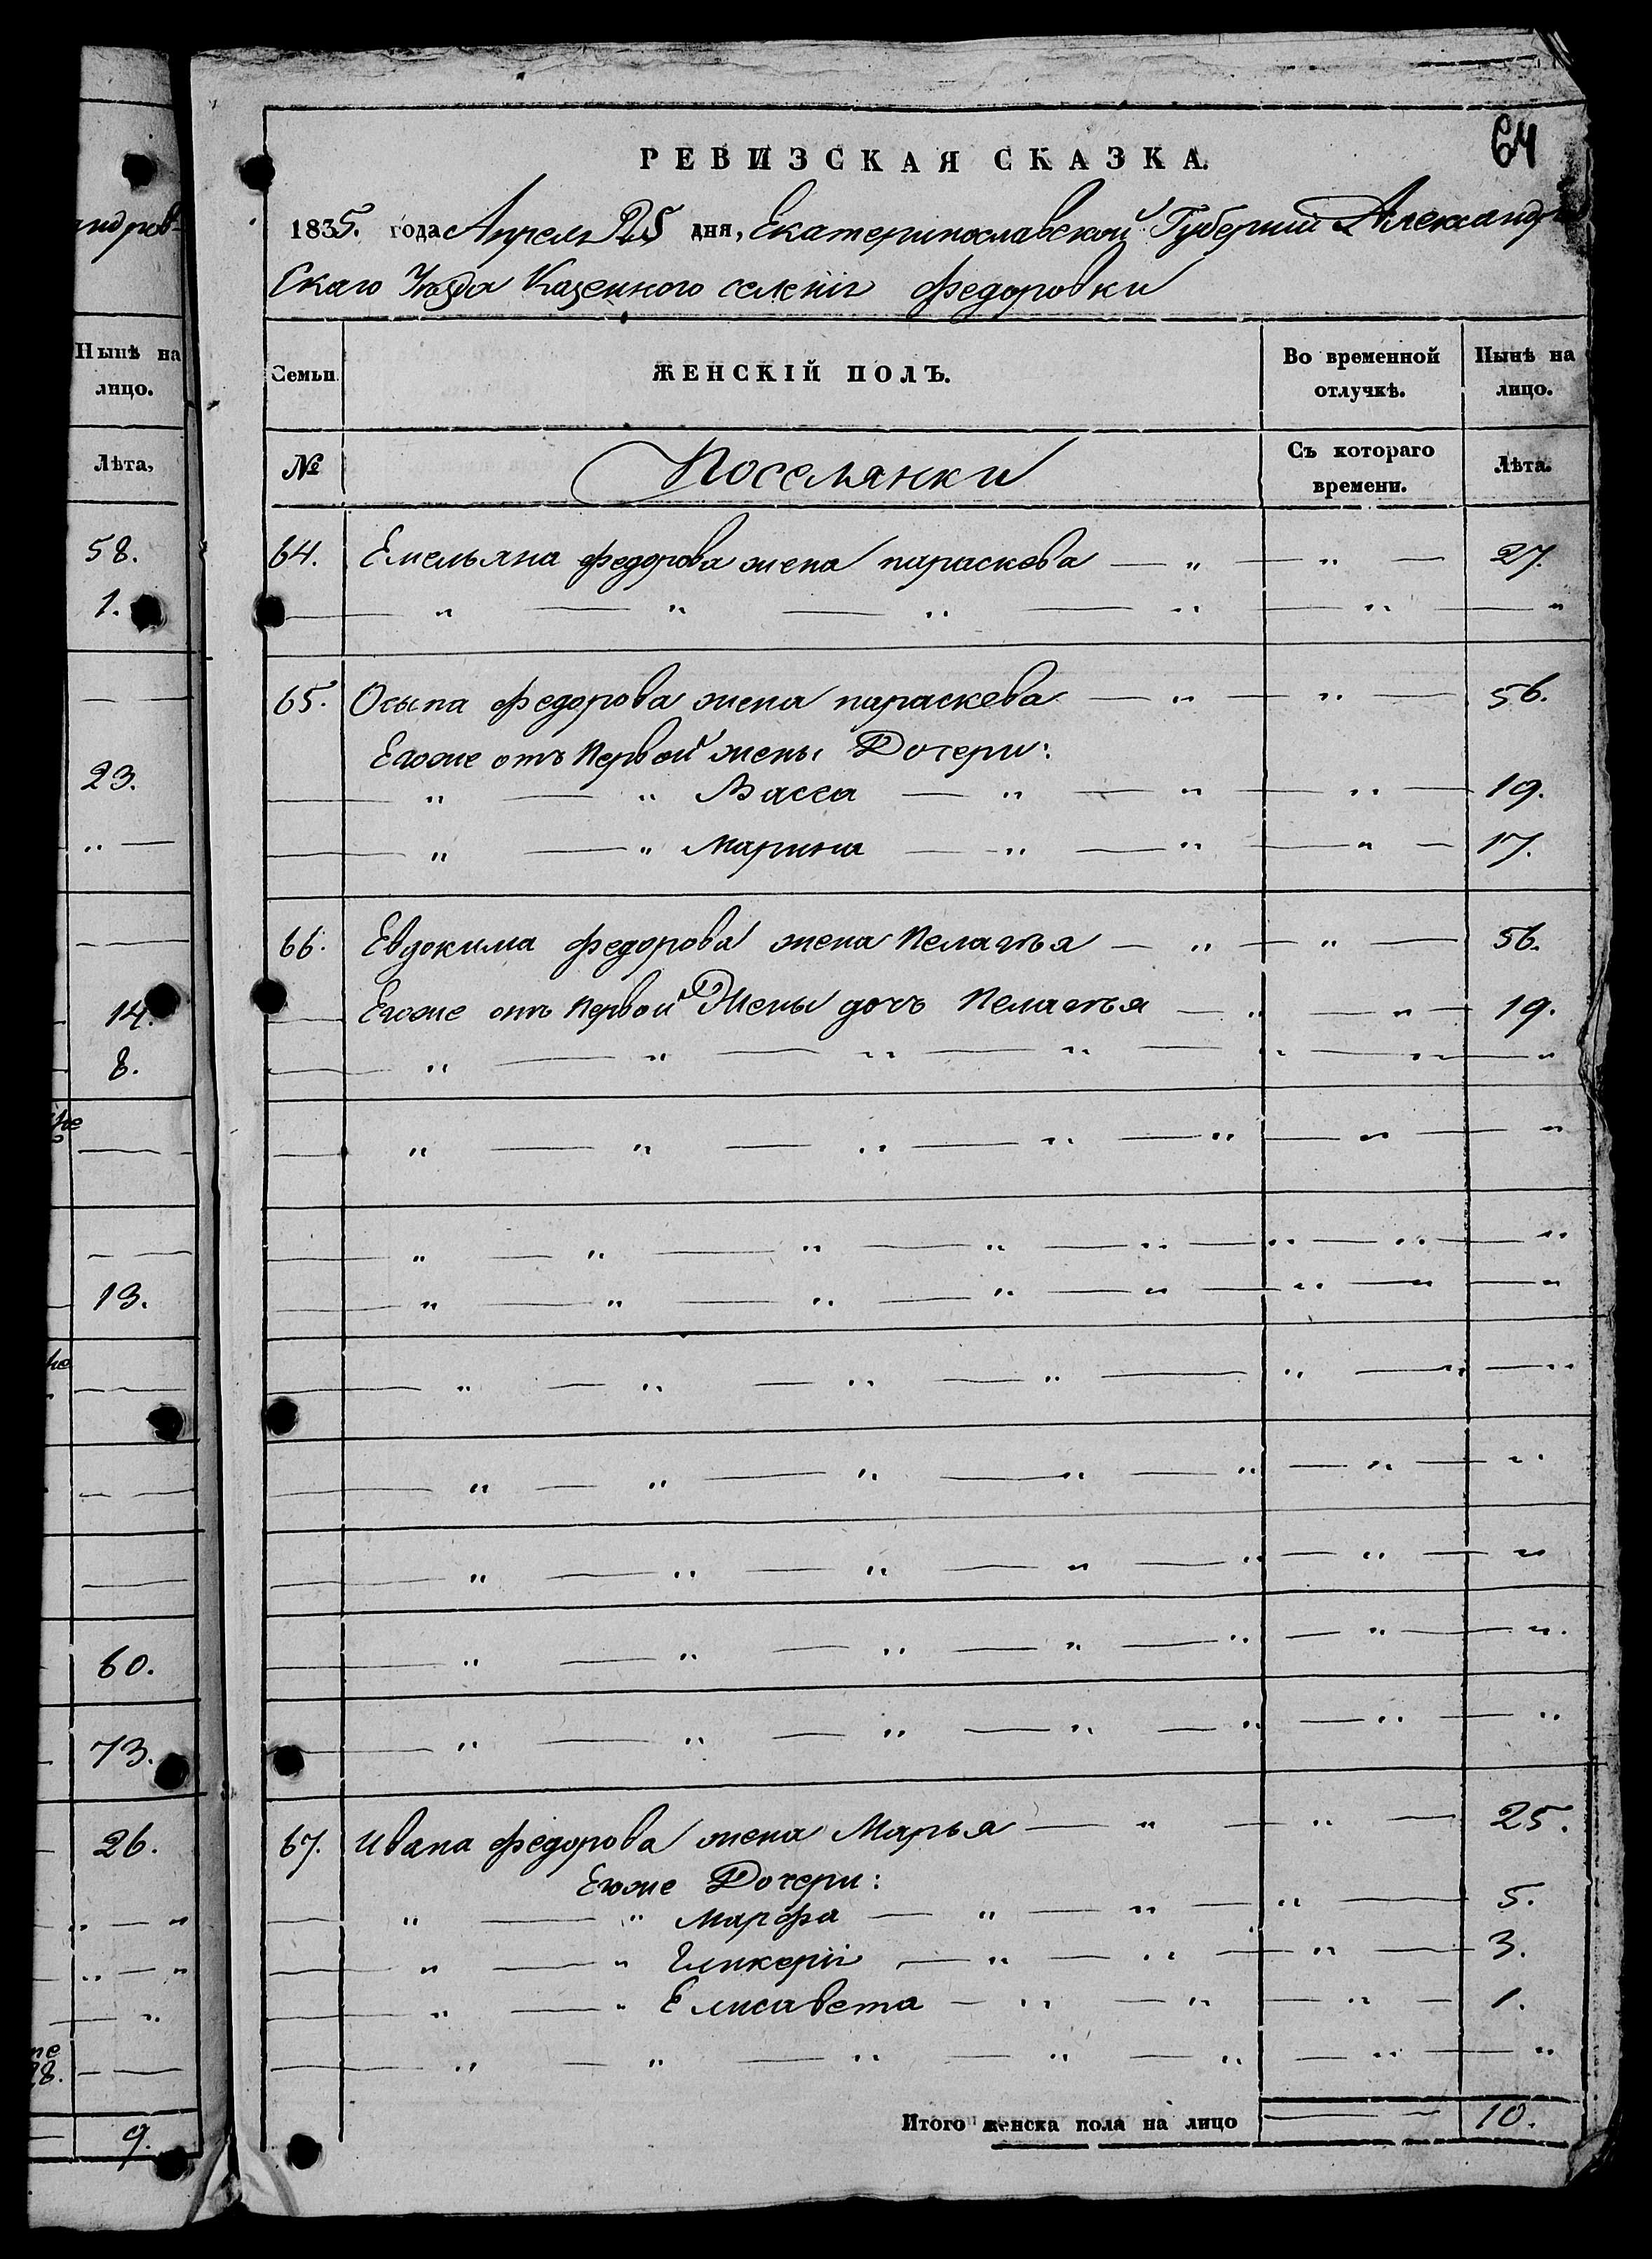 андров-
Нынѣ на
лицо.
Лѣта,
58.
1.
23.
14.
8.
13.
60.
73.
26.
28.
9.
64
РЕВИЗСКАЯ СКАЗКА.
1835. года Апреля 25 дня, Екатеринославской Губернии Александров
Скаго Уѣзда Казенного селенія Федоровки
Семьи
ЖЕНСКІЙ ПОЛЪ.
Во временной отлучкѣ.
Нынѣ на лицо.
№
Поселянки
Съ котораго времени.
Лѣта.
64. Емельяна Федорова жена параскева — " — " — 27.
65. Осыпа Федорова жена параскева — " — " — 56.
Егоже отъ первой жены Дочери:
" — " Васса — " — " — " — 19.
" — " Марина — " — " — " — 17.
66. Евдокима Федорова жена Пелагѣя — " — " — 56.
Егоже отъ первой Жены дочь Пелагѣя — " — " — 19.
67. Ивана Федорова жена Марья — " — " — 25.
Егоже Дочери:
" — " Марфа — " — " — " — 5.
" — " Гликерія — " — " — " — 3.
" — " Елисавета — " — " — " — 1.
Итого женска пола на лицо — 10.